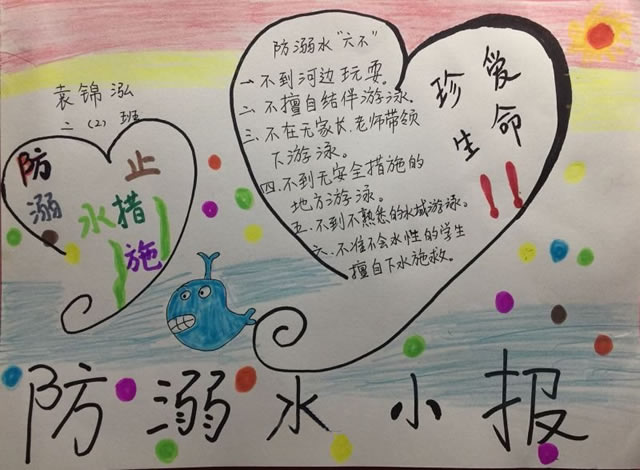 袁锦泓
二（2）班
防止
溺水措施
防溺水"六不"
一、不到河边玩耍。
二、不擅自结伴游泳。
三、不在无家长、老师带领
下游泳。
四、不到无安全措施的
地方游泳。
五、不到不熟悉的水域游泳。
六、不准不会水性的学生
擅自下水施救。
珍爱
生命!!
防溺水小报